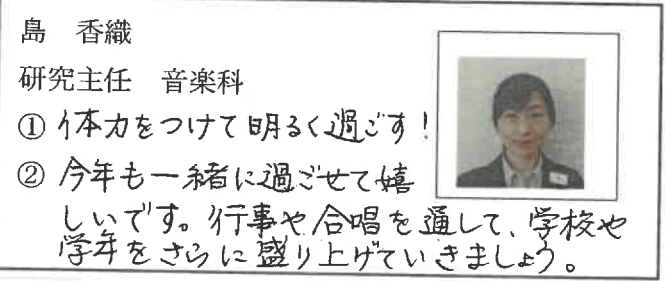 島　香織
研究主任　音楽科
① 体力をつけて明るく過ごす！
② 今年も一緒に過ごせて嬉
しいです。行事や合唱を通して、学校や
学年をさらに盛り上げていきましょう。